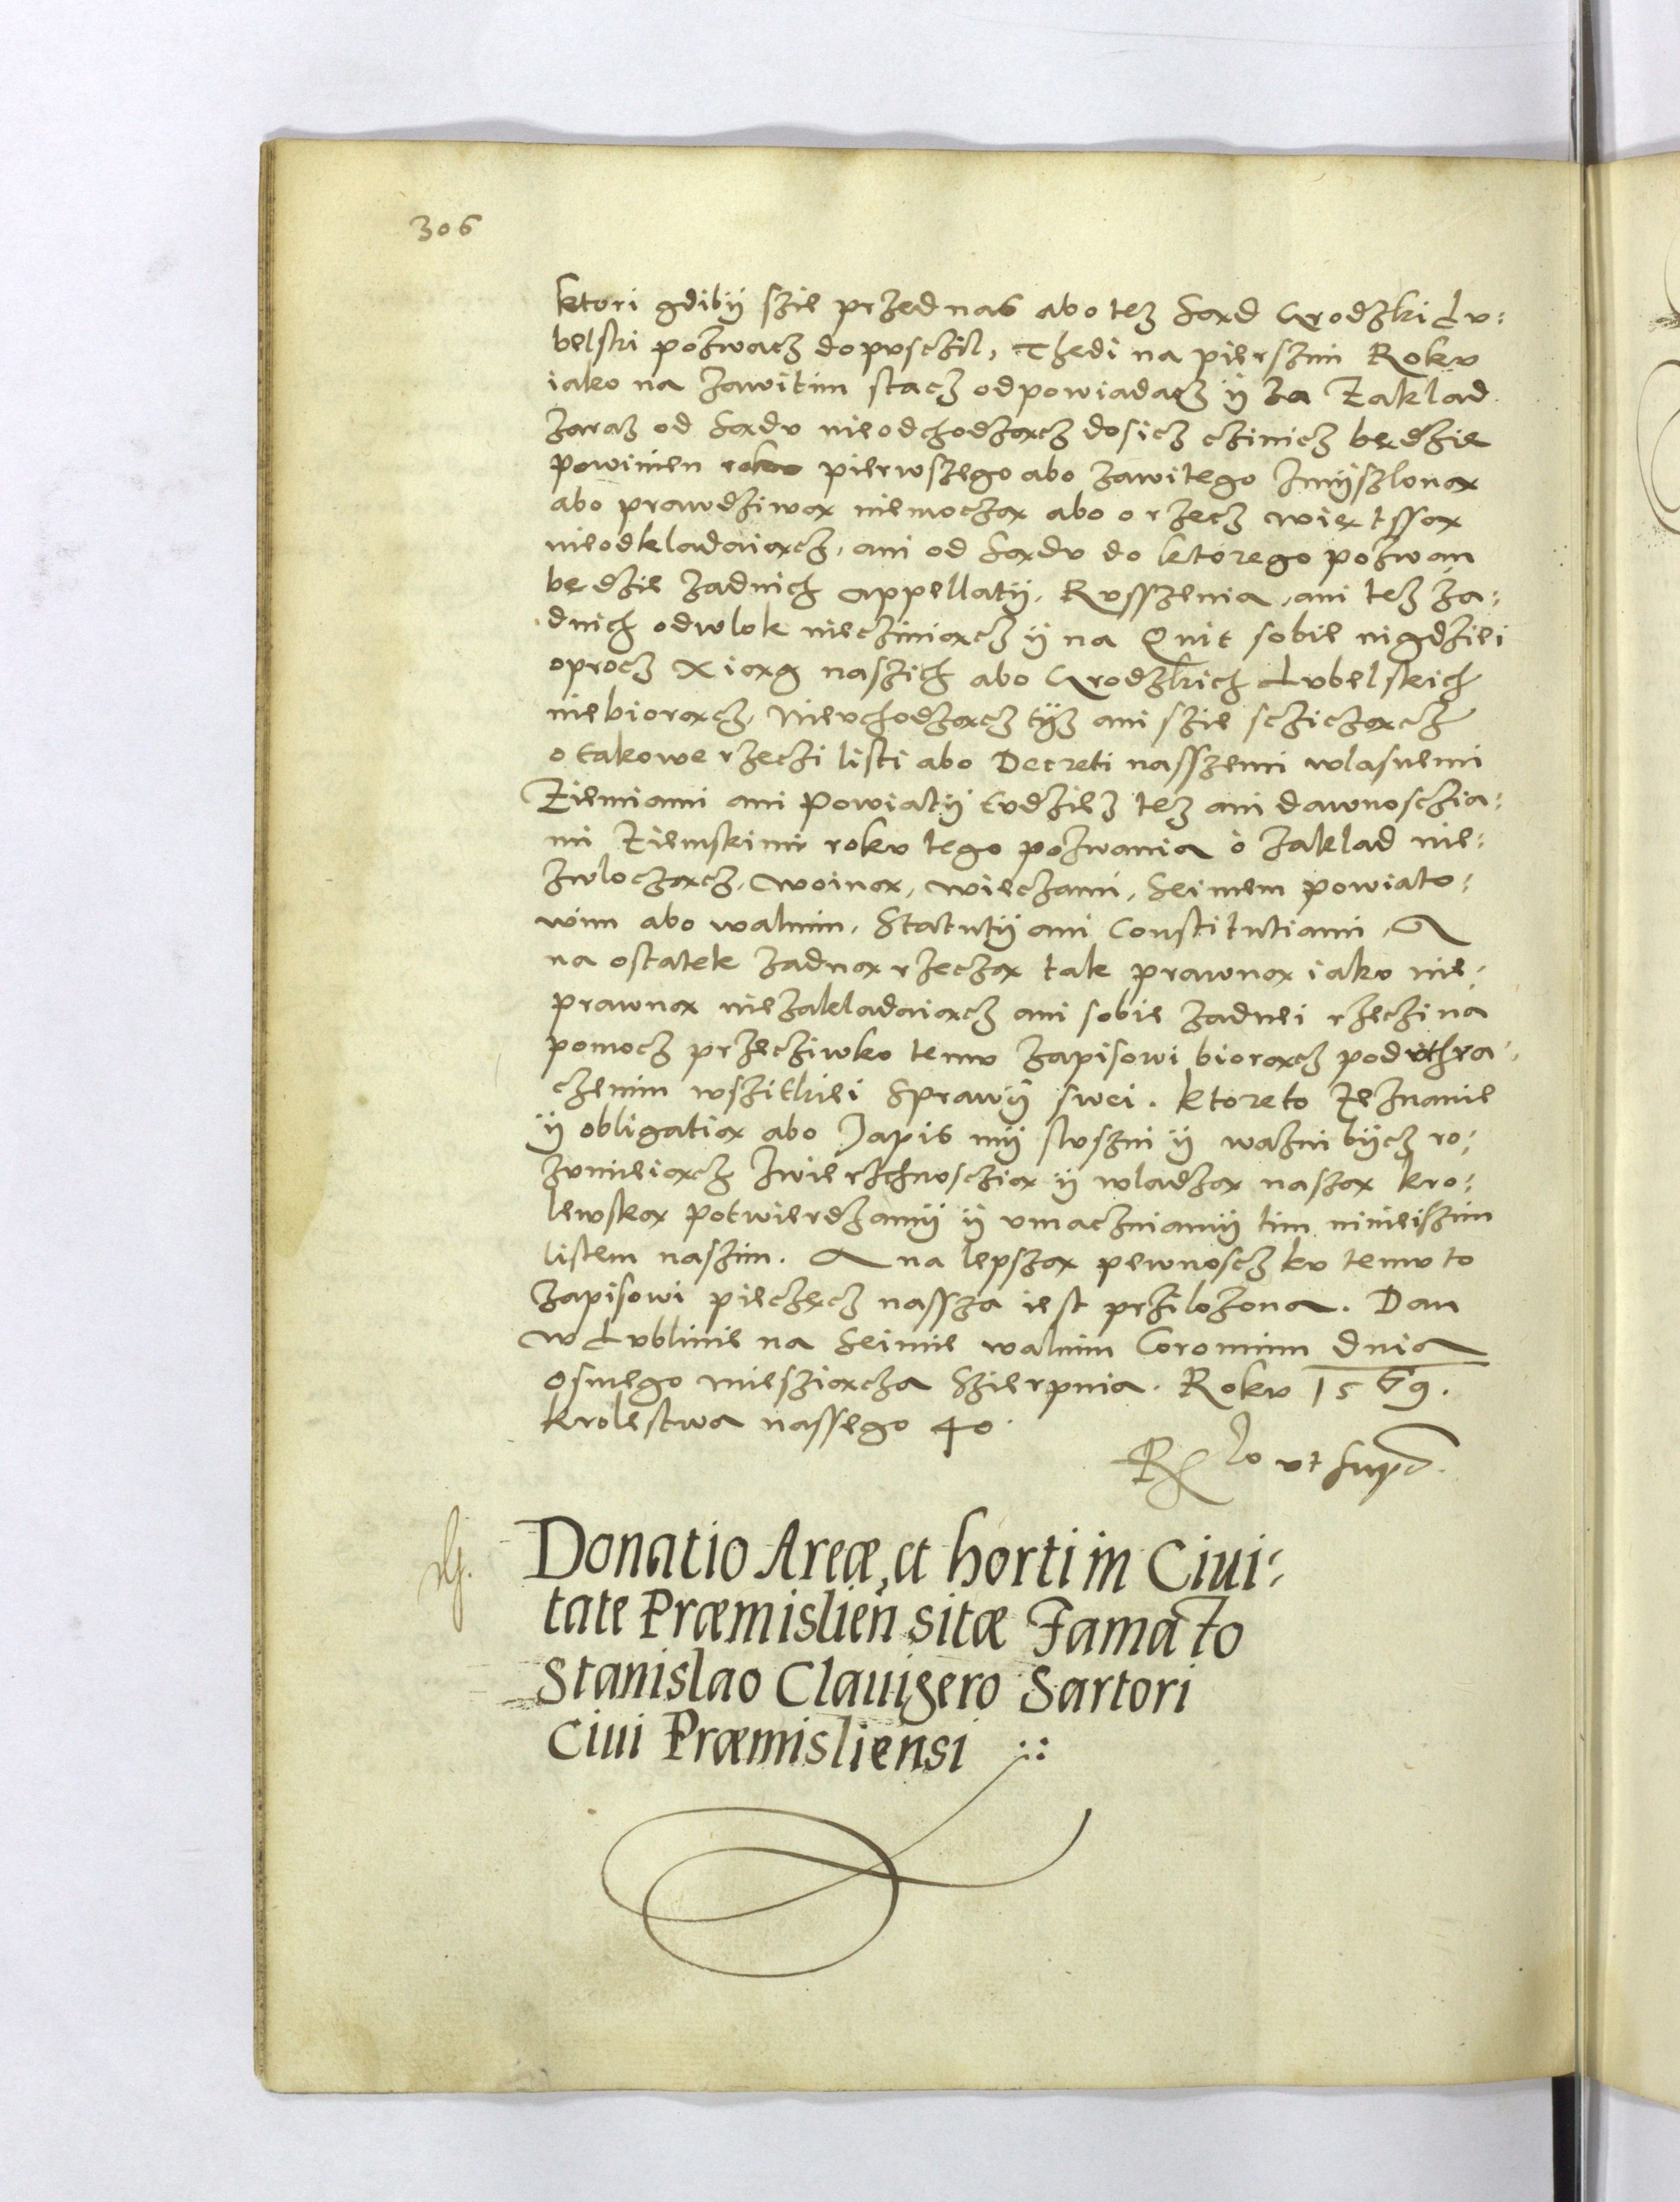 306
ktori gdibÿ szie przed nas abo tez Sąd Grodzki Lu:
belski pozwacz dopuscził, Thedi na pierszim Roku
iako na zawitim stacz odpowiadacz ÿ za Zaklad
zaraz od Sądu nieodchodzącz dosicz czinicz będzie
powinien roku pierwszego abo zawitego zmÿszloną
abo prawdziwą niemoczą abo o rzecz więtssą
nieodkladaiącz, ani od Sądu do ktorego pozwan
będzie zadnich appellatÿ, Russzenia, ani tez za:
dnich odwlok niecziniącz ÿ na Quit sobie nigdziei
oprocz Xiąg naszich abo Grodzkich Lubelskich
niebiorącz, Nieuchodzącz tÿz ani szie scziczącz
o takowe rzeczi listi abo Decreti nasszemi wlasnemi
Ziemiami ani Powiatÿ tudziez tez ani dawnosczia:
mi Ziemskimi roku tego pozwania o zaklad nie:
zwloczącz, woiną, wieczami, Seimem powiato:
wim abo walnim, Statutÿ ani Constitutiami, A
na ostatek zadną rzeczą tak prawną iako nie:
prawną niezakladaiącz ani sobie zadnei rzeczi na
pomocz przecziwko temu zapisowi biorącz pod uthra:
czenim wszitkiei Sprawÿ swei. Ktoreto Zeznanie
ÿ obligatią abo Zapis mÿ sluszni ÿ wazni bÿcz ro:
zumieiącz zwierzchnosczią ÿ wladzą naszą kro:
lewską potwierdzamÿ ÿ umaczniamÿ tim ninieiszim
listem naszim. A na lepszą pewnoscz ku temu to
zapisowi pieczęcz nassza iest prziłozona. Dan
w Lublinie na Seimie walnim Coronnim dnia
osmego miesziącza Szierpnia. Roku 1569.
Krolestwa nassego 40.
Rx Io ut sup
Donatio Areæ, et horti in Ciui:
tate Præmislien̄ sitæ Famato
Stanislao Clauigero Sartori
Ciui Præmisliensi